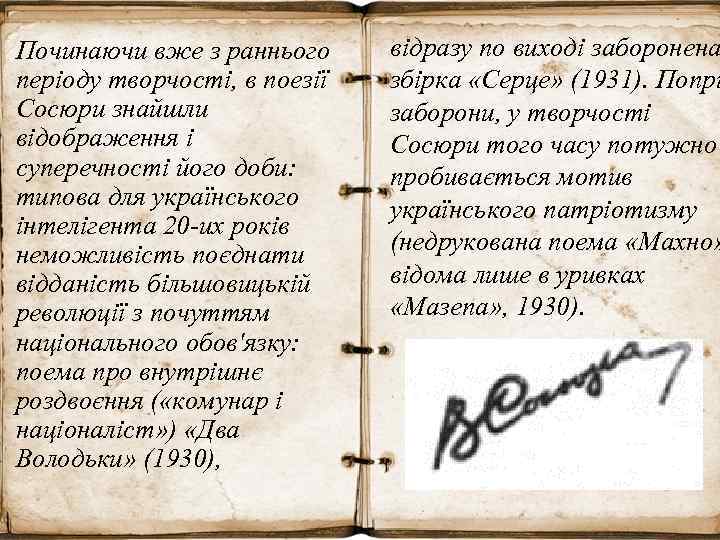 Починаючи вже з раннього
періоду творчості, в поезії
Сосюри знайшли
відображення і
суперечності його доби:
типова для українського
інтелігента 20-их років
неможливість поєднати
відданість більшовицькій
революції з почуттям
національного обов'язку:
поема про внутрішнє
роздвоєння («комунар і
націоналіст» ) «Два
Володьки» (1930),
відразу по виході заборонена
збірка «Серце» (1931). Попри
заборони, у творчості
Сосюри того часу потужно
пробивається мотив
українського патріотизму
(недрукована поема «Махно»
відома лише в уривках
«Мазепа» , 1930).
ВСосюра